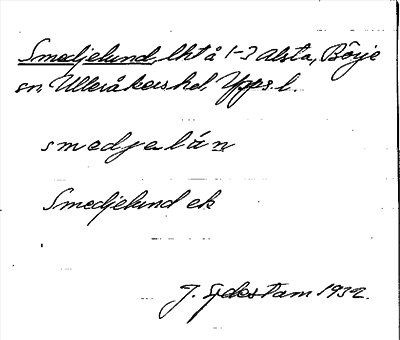 Smedjelund, lht å 1-3 Alsta, Börje
sn Ulleråkers hd, Upps. l.
smedjelún
Smedjelund ek
J. Sydestam 1932.